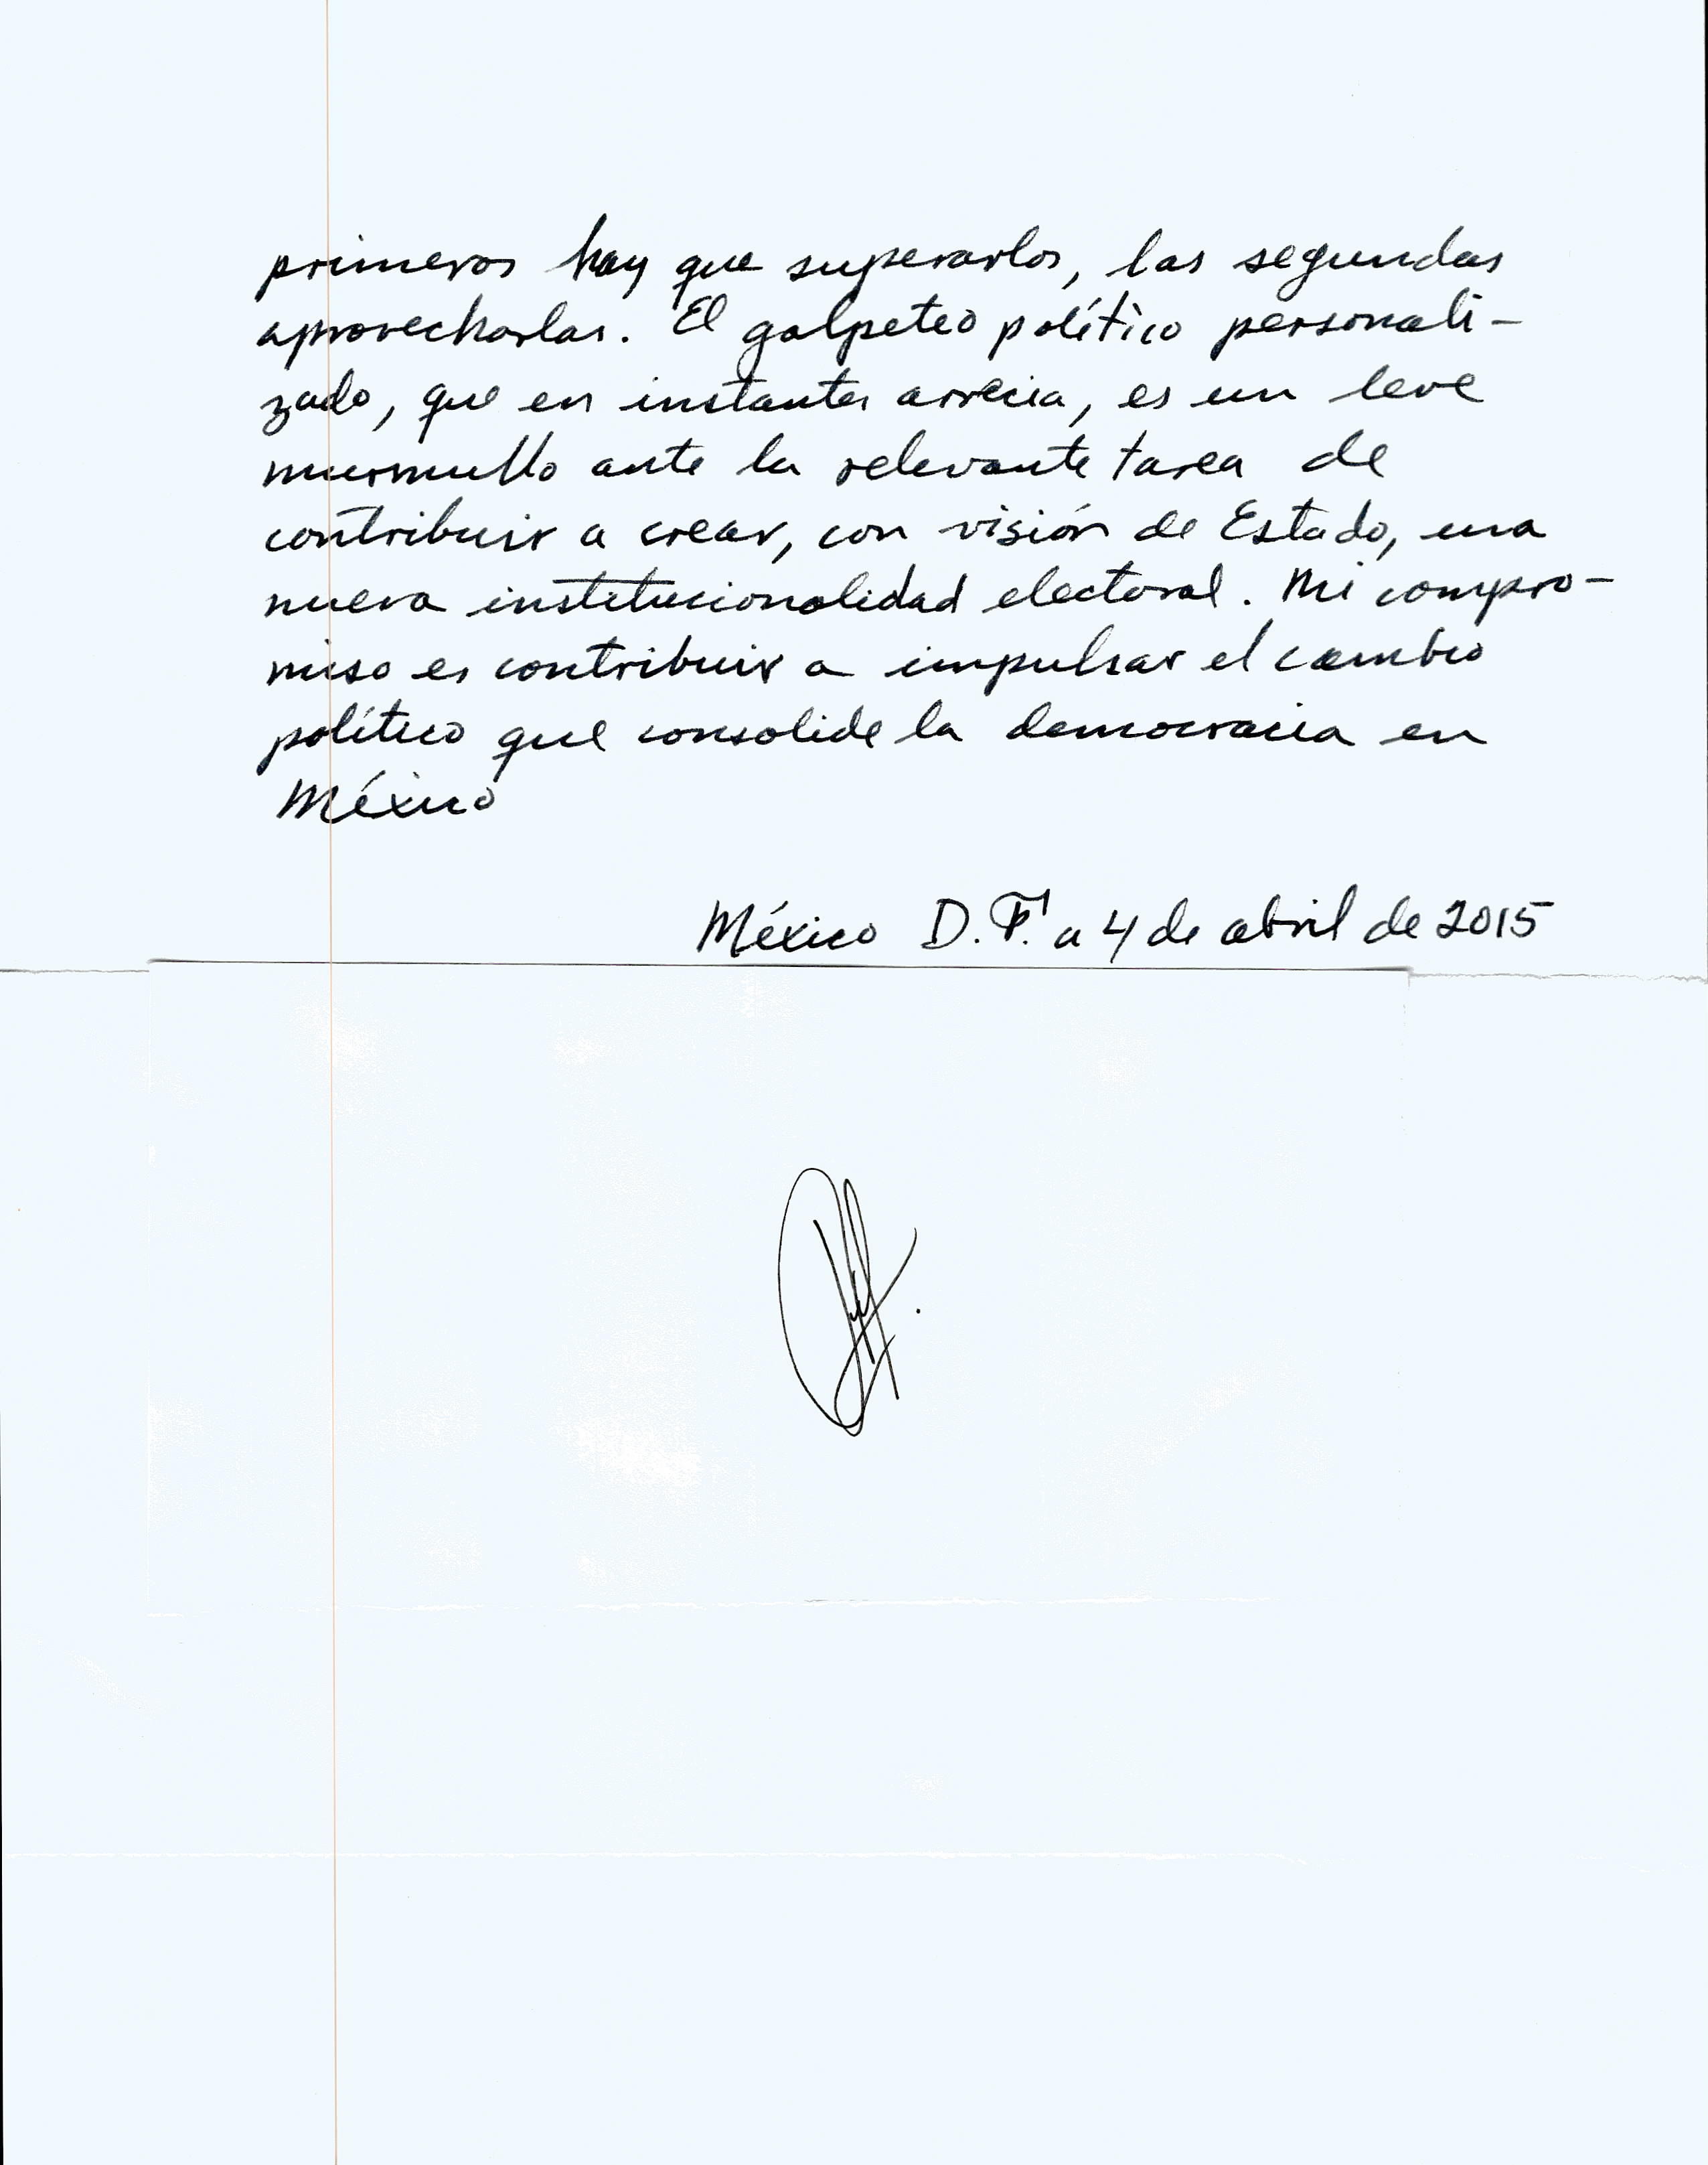 primeros hay que superarlos, las segundas
aprovecharlas. El golpeteo político personali-
zado, que en instantes arrecia, es un leve
murmullo ante la relevante tarea de
contribuir a crear, con visión de Estado, una
nueva institucionalidad electoral. Mi compro-
miso es contribuir a impulsar el cambio
político que consolide la democracia en
México
México D.F. a 4 de abril de 2015